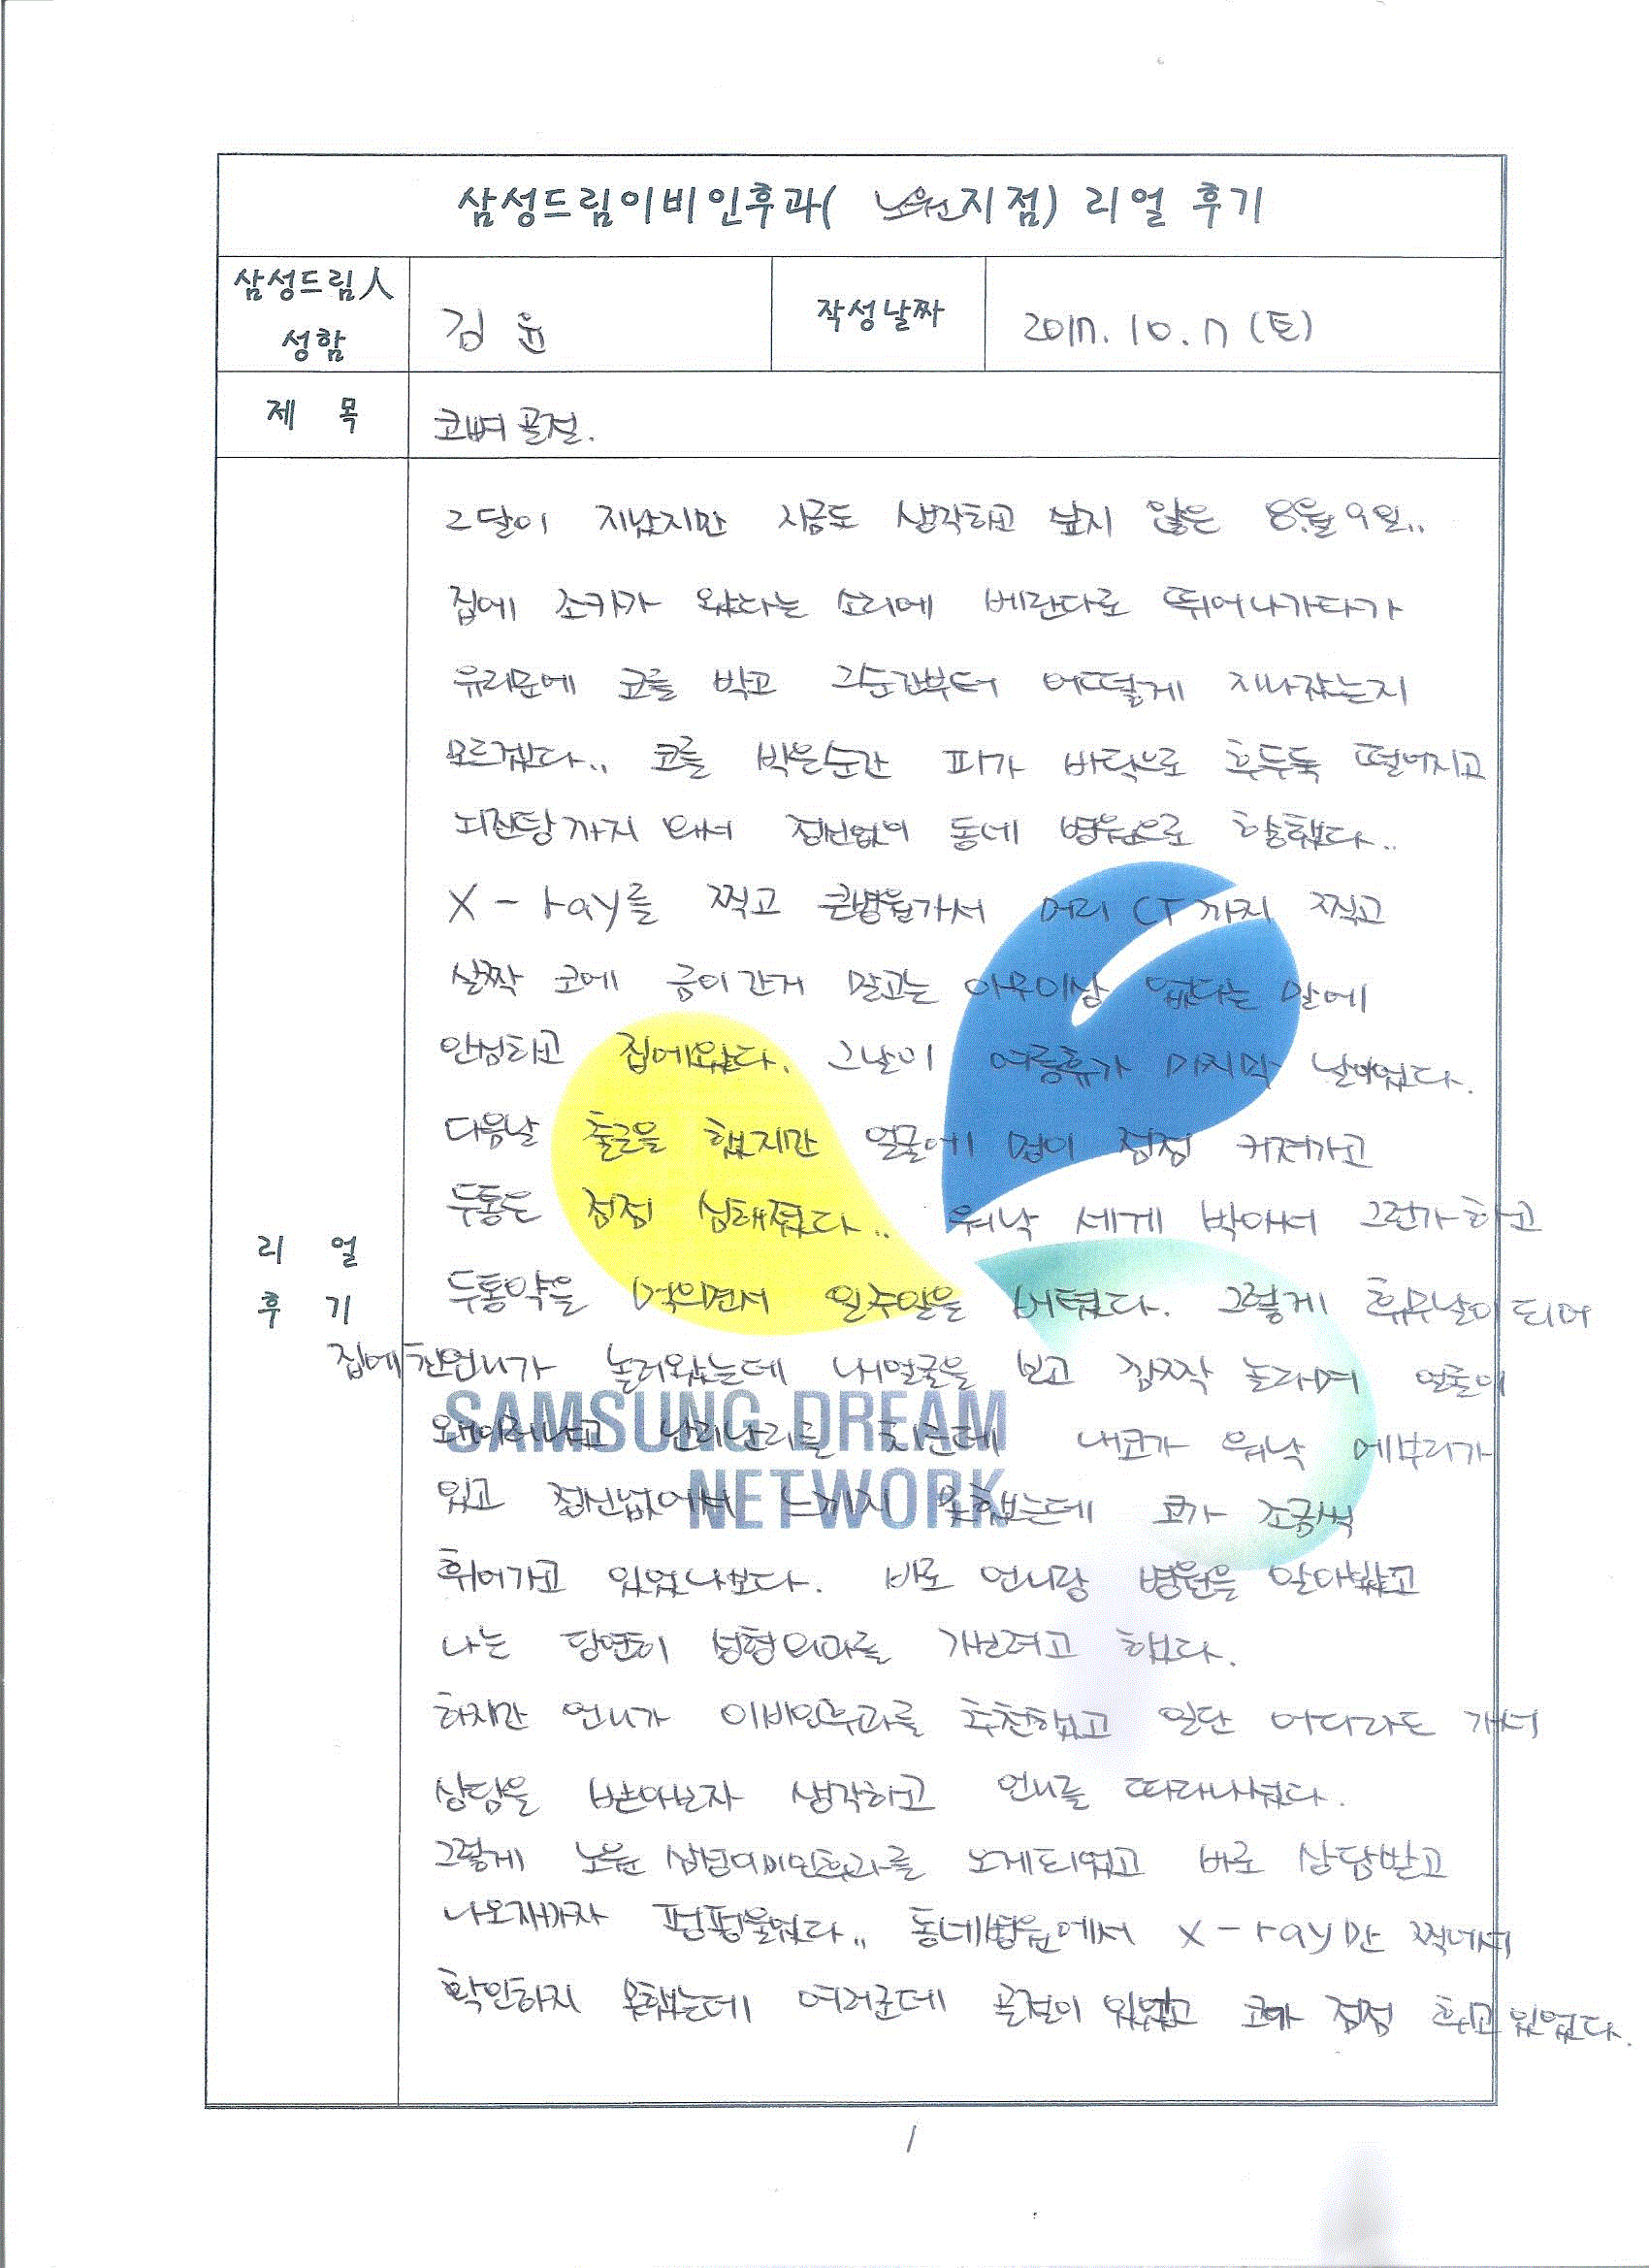 삼성드림이비인후과( 노원지점) 리얼 후기
삼성드림人
성함
김 윤
작성날짜
2017. 10. 7 (토)
제 목
코뼈 골절.
2달이 지났지만 지금도 생각하고 싶지 않은 8월 9일..
집에 조카가 왔다는 소리에 베란다로 뛰어나가다가
유리문에 코를 박고 그순간부터 어떻게 지나갔는지
모르겠다.. 코를 박은순간 피가 바닥으로 후두둑 떨어지고
뇌진탕까지 와서 정신없이 동네 병원으로 향했다..
X - ray를 찍고 큰병원가서 머리 CT까지 찍고
살짝 코에 금이간거 말고는 아무이상 없다는 말에
안심하고 집에왔다. 그날이 여름휴가 마지막 날이었다.
다음날 출근을 했지만 얼굴에 멍이 점점 커져가고
두통은 점점 심해졌다.. 워낙 세게 박아서 그런가하고
두통약을 먹으면서 일주일을 버텼다. 그렇게 휴무날이 되어
집에 친언니가 놀러왔는데 내얼굴을 보고 깜짝 놀라며 얼굴이
왜이러냐고 난리난리를 치는데 내코가 워낙 메부리가
있고 정신없어서 느끼지 못했는데 코가 조금씩
휘어가고 있었나보다. 바로 언니랑 병원을 알아봤고
나는 당연히 성형외과를 가보려고 했다.
하지만 언니가 이비인후과를 추천했고 일단 어디라도 가서
상담을 받아보자 생각하고 언니를 따라나섰다.
그렇게 노원 삼성이비인후과를 오게되었고 바로 상담받고
나오자마자 펑펑울었다.. 동네병원에서 X-ray만 찍어서
확인하지 못했는데 여러군데 골절이 있었고 코가 점점 휘고 있었다.
리 얼
후 기
SAMSUNG DREAM
NETWORK
1